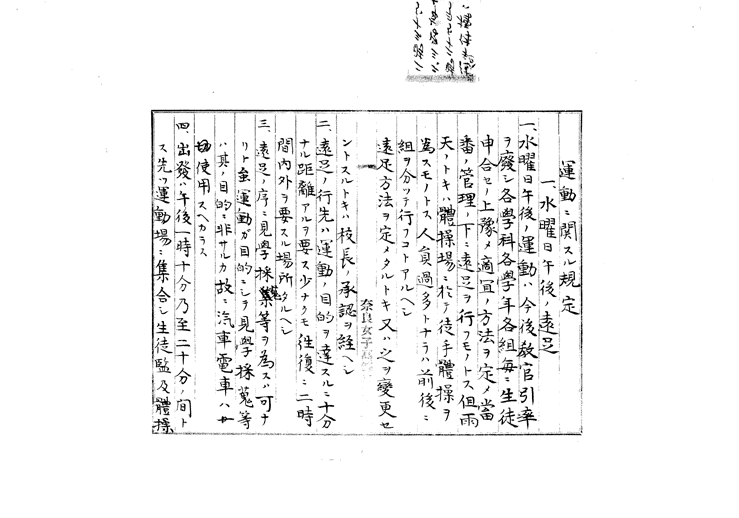 運動ニ関スル規定
一、水曜日午後ノ遠足
一、水曜日午後ノ運動ハ今後教官引率
ヲ廢シ各學科各學年各組毎ニ生徒
申合セノ上豫メ適宜ノ方法ヲ定メ當
番ノ管理ノ下ニ遠足ヲ行フモノトス但雨
天ノトキハ體操場ニ於テ徒手體操ヲ
為スモノトス人員過多トナラハ前後ニ
組ヲ分ツテ行フコトアルヘシ
遠足方法ヲ定メタルトキ又ハ之ヲ變更セ
奈良女子高
ントスルトキハ校長ノ承認ヲ経ヘシ
二、遠足ノ行先ハ運動ノ目的ヲ達スルニ十分
ナル距離アルヲ要ス少ナクモ往復ニ二時
間内外ヲ要スル場所タルヘシ
三、遠足ノ序ニ見學採蒐等ヲ為スハ可ナ
リト雖運動ガ目的ニシテ見學採蒐等
ハ其ノ目的ニ非サルカ故ニ汽車電車ハ一
切使用スヘカラス
四、出發ハ午後一時十分乃至二十分ノ間ト
ス先ツ運動場ニ集合シ生徒監及體操